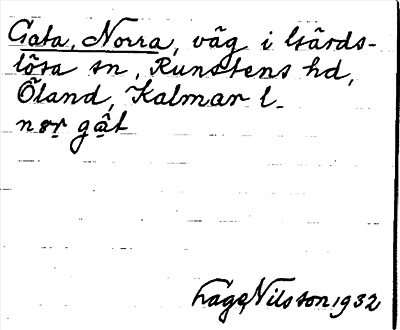 Gata, Norra, väg i Gärds-
lösa sn, Runstens hd,
Öland, Kalmar l.
nør gât
Hage Nilsson 1932